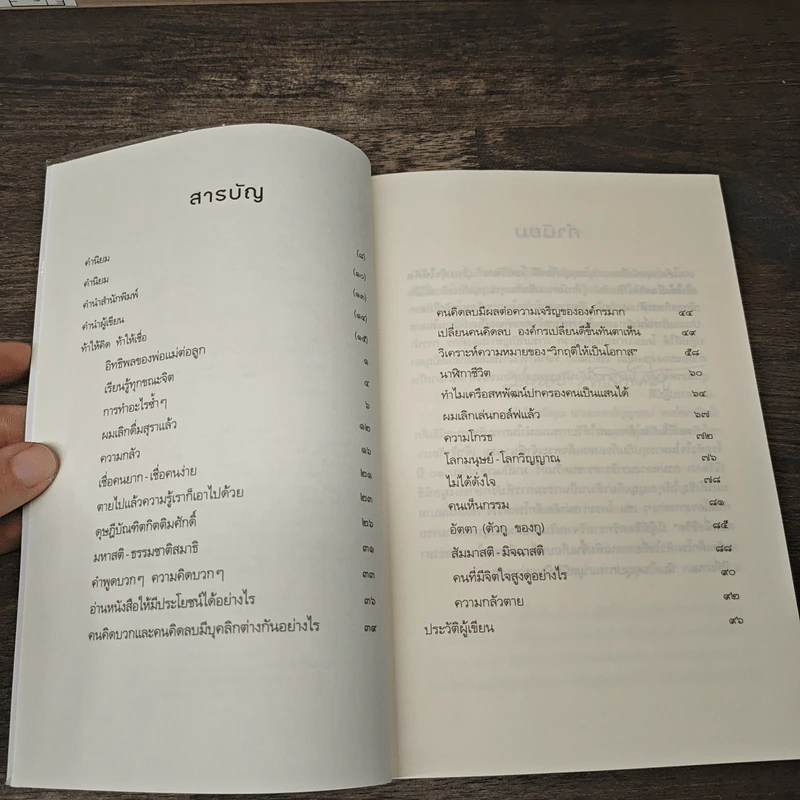 สารบัญ
คำนิยม (๘)
คำนิยม (๑๐)
คำนำสำนักพิมพ์ (๑๓)
คำนำผู้เขียน (๑๔)
ทำให้คิด ทำให้เชื่อ (๑๕)
อิทธิพลของพ่อแม่ต่อลูก ๑
เรียนรู้ทุกขณะจิต ๔
การทำอะไรซ้ำๆ ๖
ผมเลิกดื่มสุราแล้ว ๑๒
ความกลัว ๑๖
เชื่อคนยาก - เชื่อคนง่าย ๒๑
ตายไปแล้วความรู้เราก็เอาไปด้วย ๒๓
ดุษฎีบัณฑิตกิตติมศักดิ์ ๒๖
มหาสติ - ธรรมชาติสมาธิ ๓๑
คำพูดบวกๆ ความคิดบวกๆ ๓๓
อ่านหนังสือให้มีประโยชน์ได้อย่างไร ๓๖
คนคิดบวกและคนคิดลบมีบุคลิกต่างกันอย่างไร ๓๙
คำนิยม
คนคิดลบมีผลต่อความเจริญขององค์กรมาก ๔๔
เปลี่ยนคนคิดลบ องค์กรเปลี่ยนดีขึ้นทันตาเห็น ๔๙
วิเคราะห์ความหมายของ "วิกฤติให้เป็นโอกาส" ๕๘
นาฬิกาชีวิต ๖๐
ทำไมเครือสหพัฒน์ปกครองคนเป็นแสนได้ ๖๔
ผมเลิกเล่นกอล์ฟแล้ว ๖๗
ความโกรธ ๗๒
โลกมนุษย์ - โลกวิญญาณ ๗๖
ไม่ได้ตั้งใจ ๗๘
คนเห็นกรรม ๘๑
อัตตา (ตัวกู ของกู) ๘๕
สัมมาสติ - มิจฉาสติ ๘๘
คนที่มีจิตใจสูงดูอย่างไร ๙๐
ความกลัวตาย ๙๒
ประวัติผู้เขียน ๙๖